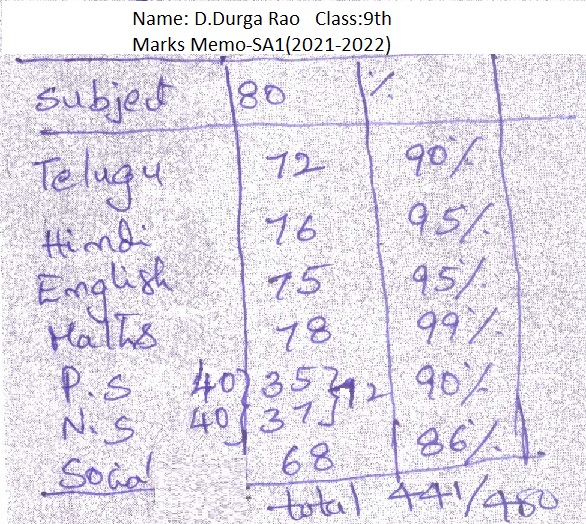 Name: D.Durga Rao Class:9th
Marks Memo-SA1(2021-2022)
Subject 80 %
Telugu 72 90%
Himdi 76 95%
English 75 95%
Maths 78 99%
P.S 40 } 35 } 72 90%
N.S 40 } 37 }
Social 68 86%
total 441/480